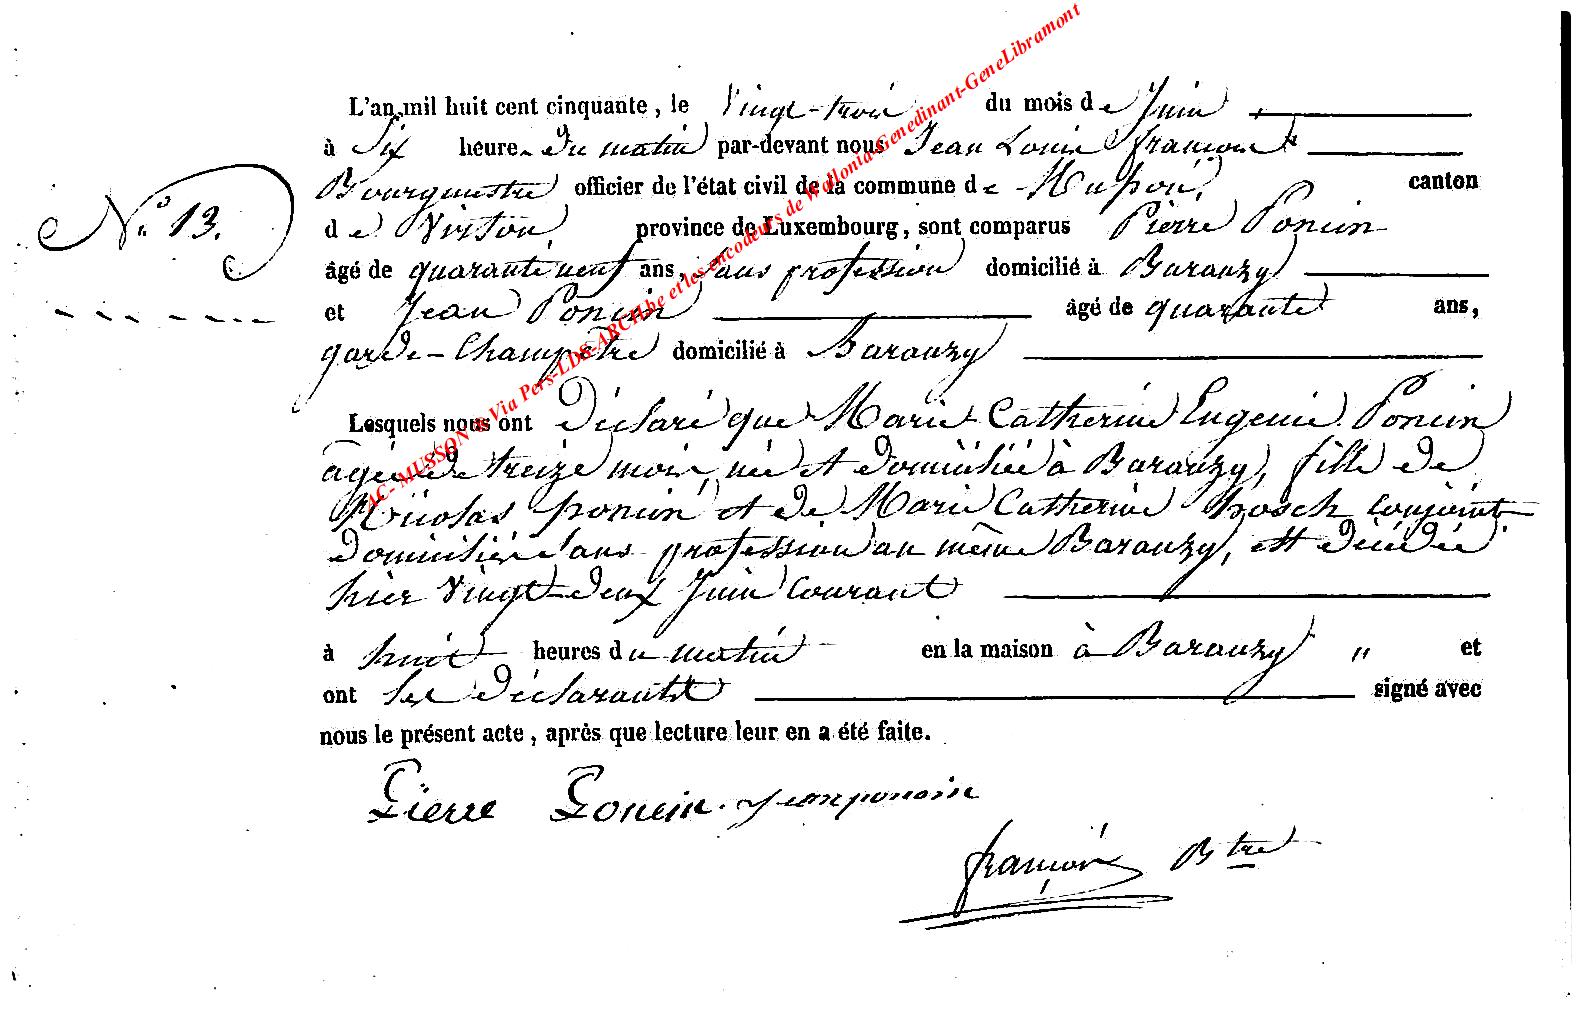 L'an mil huit cent cinquante, le Vingt-trois du mois de Juin
à Six heures du matin par-devant nous Jean Louis françois
Bourgmestre officier de l'état civil de la commune de Musson, canton
N.° 13.
de Virton, province de Luxembourg, sont comparus Pierre Poncin
âgé de quarante neuf ans, sans profession domicilié à Baranzy
et Jean Poncin âgé de quarante ans,
garde-Champêtre domicilié à Baranzy
Lesquels nous ont déclaré que Marie Catherine Eugenie Poncin
agée de treize mois, née et domiciliée à Baranzy, fille de
Nicolas Poncin et de Marie Catherine conjoints
domiciliés sans profession au même Baranzy, est décédée
hier Vingt-deux Juin Courant
à huit heures du matin en la maison à Baranzy " et
ont les déclarants signé avec
nous le présent acte, après que lecture leur en a été faite.
Pierre Poncin. Jean poncin
françois Btre
AC- MUSSON - Via Pers-LDS-ARCH.be et les encodeurs de Wallonia-Genedinant-GeneLibramont